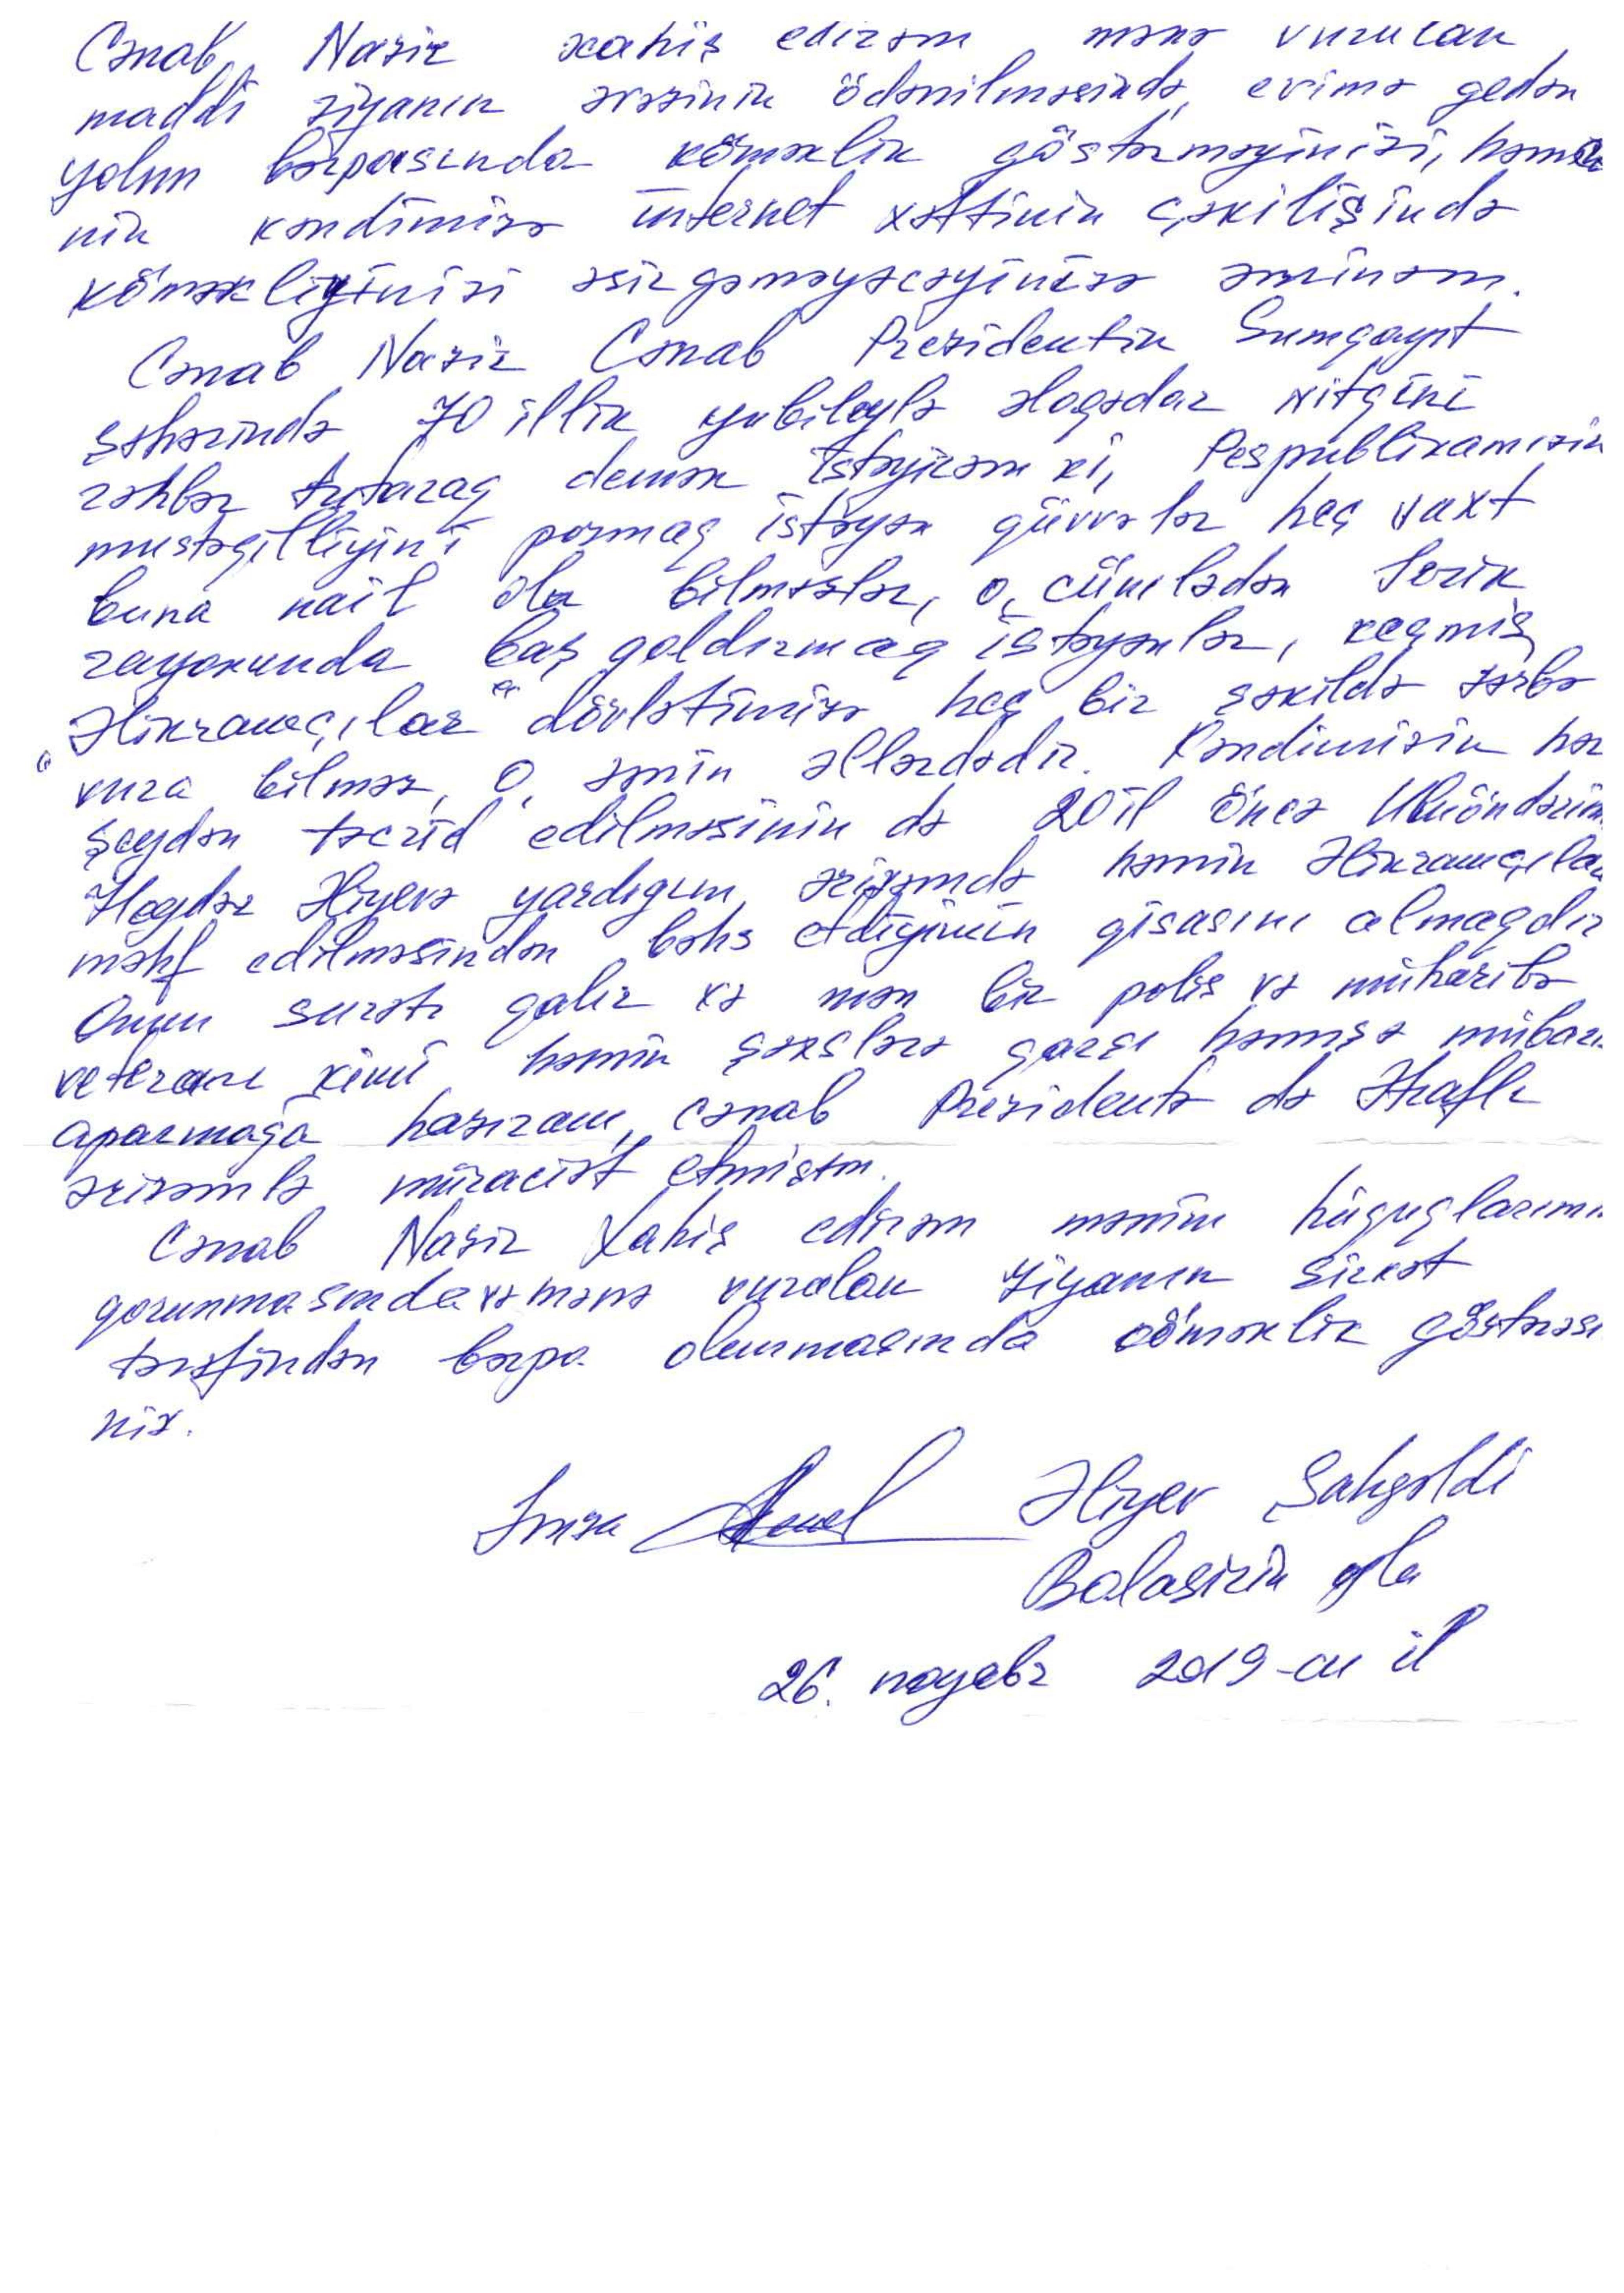 Cənab Nazir xahiş edirəm mənə vurulan
maddi ziyanın əvəzinin ödənilməsində, evimə gedən
yolun bərpasında köməklik göstərməyinizi, həmçi
nin kəndimizə internet xəttinin çəkilişində
köməkliyinizi əsirgəməyəcəyinizə əminəm.
Cənab Nazir Cənab Prezidentin Sumqayıt
şəhərində 70 illik yubileylə əlaqədar nitqini
rəhbər tutaraq demək istəyirəm ki, Respublikamızın
mustəqilliyini pozmaq istəyən qüvvələr heç vaxt
buna nail ola bilməzlər, o, cümlədən Lerik
rayonunda baş qaldırmaq istəyənlər, keçmiş
"Əlikramçılar" dövlətimizə heç bir şəkildə zərbə
vura bilməz, O, əmin əllərdədir. Kəndimizin hər
şeydən təcrid edilməsinin də 20 il öncə Uluöndərim
Heydər Əliyevə yazdığım ərizəmdə həmin Əlikramçılar
məhf edilməsindən bəhs etdiyimin qisasını almaqdır
Onun surəti qalır və mən bir polis və müharibə
veteranı kimi həmin şəxslərə qarşı həmişə mübari
aparmağa hazıram, cənab Prezidentə də Ətraflı
ərizəmlə müraciət etmişəm.
Cənab Nazir Xahiş edirəm mənim hüquqlarımı
qorunmasında və mənə vurulan ziyanın Şirkət
tərəfindən bərpa olunmasında cöməklik göstərəsi
niz.
İmza Əliyev Şahgəldi
Balaşirin oğlu
26. noyabr 2019-cu il